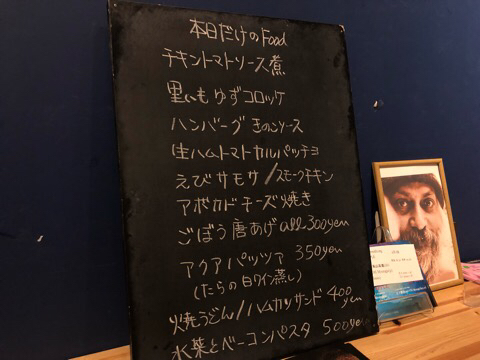 本日だけのFood
チキントマトソース煮
里いもゆずコロッケ
ハンバーグ きのこソース
生ハムトマトカルパッチョ
えびサモサ/スモークチキン
アボカドチーズ焼き
ごぼう唐あげ all 300yen
アクアパッツァ 350yen
(たらの白ワイン蒸し)
焼うどん/ハムカツサンド 400yen
水菜とベーコンパスタ 500yen